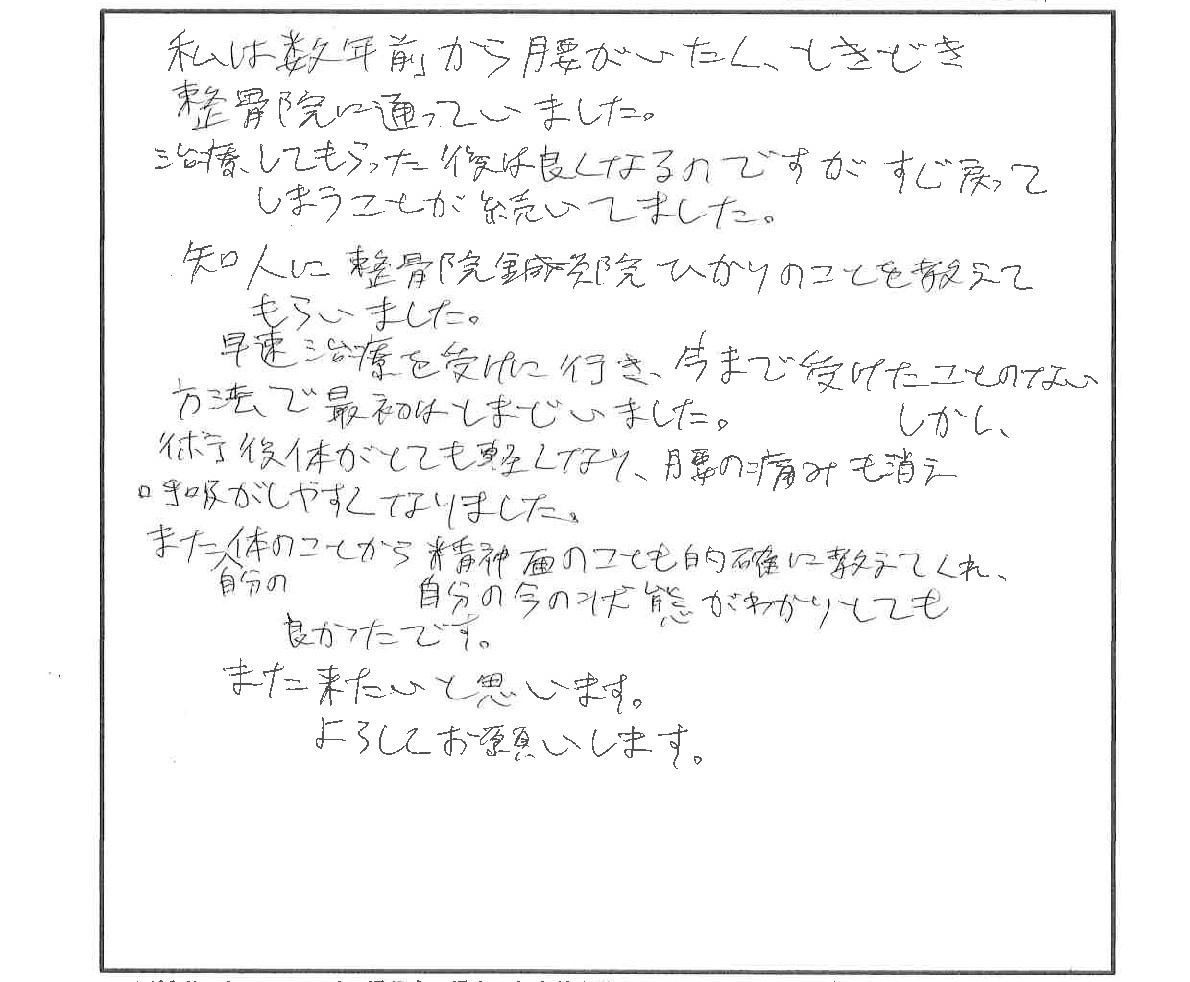 私は数年前から腰がいたく、ときどき
整骨院に通っていました。
治療してもらった後は良くなるのですがすぐ戻って
しまうことが続いてました。
知人に整骨院鍼灸院ひかりのことを教えて
もらいました。
早速治療を受けに行き、今まで受けたことのない
方法で最初はとまどいました。しかし、
術後体がとても軽くなり、腰の痛みも消え
呼吸がしやすくなりました。
また自分の体のことから精神面のことも的確に教えてくれ、
自分の今の状態がわかりとても
良かったです。
また来たいと思います。
よろしくお願いします。